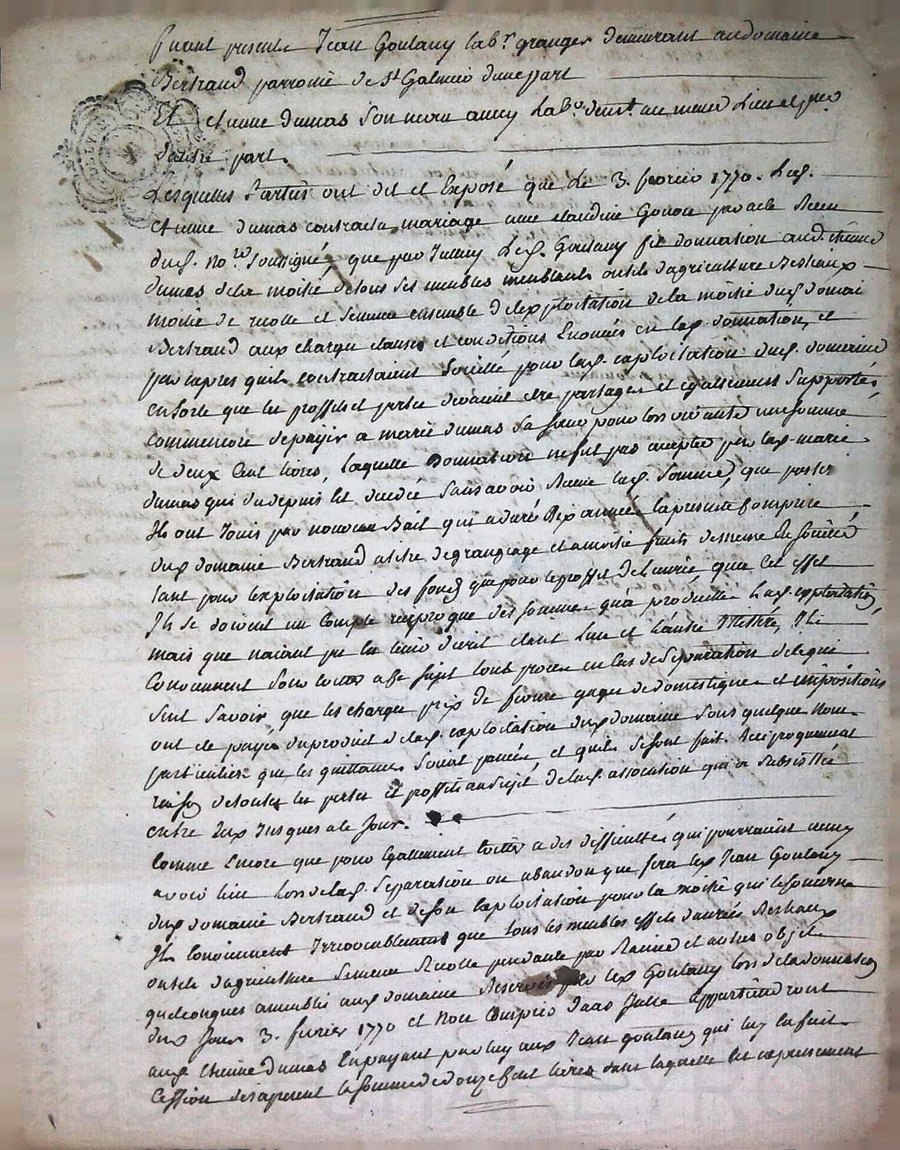 furent presents Jean Goutany lab.r granger demeurant au domaine
Bertrand parroisse de St Galmier d'une part
Et Etienne Dumas son neveu aussy Lab.r demt. au meme Lieu
d'autre part.
Lesquelles Parties ont dit et Exposé que Le 3. fevrier 1770. Led.
Etienne Dumas contracta mariage avec claudine Gonon par acte Recu
dud. no.re soussigné, que par Iceluy Led. Goutany fit donnation aud. Etienne
Dumas de la moitié de tous ses meubles meublants outils d'agriculture Bestiaux
moitié de recolte et semence ensemble de l'exploitation de la moitié dud. domaine
Bertrand aux charges clauses et conditions Enoncées en lad. donnation, et
par apres quils contractaient Societé pour lad. exploitation dud. domaine
en sorte que les proffits et pertes devaient etre partagés et egallement supportés,
commencere de payer a marie dumas sa soeur pour lors une somme
de deux Cent livres, laquelle Donnation ne fut pas acceptée par lad. marie
dumas qui du depuis est decedée sans avoir Recue lad. somme, que
Ils ont Jouis par nouveau Bail qui a duré Dix années la presente comprise
dud. domaine Bertrand a titre de grangeage et a moitié fruits de meme de société
tant pour l'exploitation des fonds que pour le proffit que cet effet
Ils se doivent un compte reciproque des sommes qu'a produittes Lad. exploitation,
mais que n'aiant pu la tenir d'ecrit etant L'un et L'autre Illittré, Ils
Conviennent pour éviter a ce sujet tout proces en cas de Separation
sent Savoir que les charges prix de ferme gages de domestiques et impositions
ont été payés du produit de lad. exploitation dud. domaine sous quelque nom
particulier que les quittances soient passées, et quils se sont fait Reciproquement
raison de toutes les pertes et proffits au sujet de lad. association qui a subsisté
entre Eux Jusques a ce Jour.
Comme Encore que pour Egallement éviter a des difficultés qui pourraient aussy
avoir lieu Lors de lad. Separation ou abandon que fera led. Jean Goutany
dud. domaine Bertrand et de son Exploitation pour la moitié qui le concerne
Ils conviennent Irrevocablement que tous les meubles effets danrées Bestiaux
outils d'agriculture semence Recolte pendante par Racine et autres objets
quelconques ameublis aud. domaine Reservés par led. Goutany lors de la donnation
dud. Jour 3. fevrier 1770 et non compris dans Icelle appartiendront
aud. Etienne Dumas En payant par luy aud. Jean goutany qui luy En fait
Cession des apresent la somme de douze cent livres dans laquelle est expressement